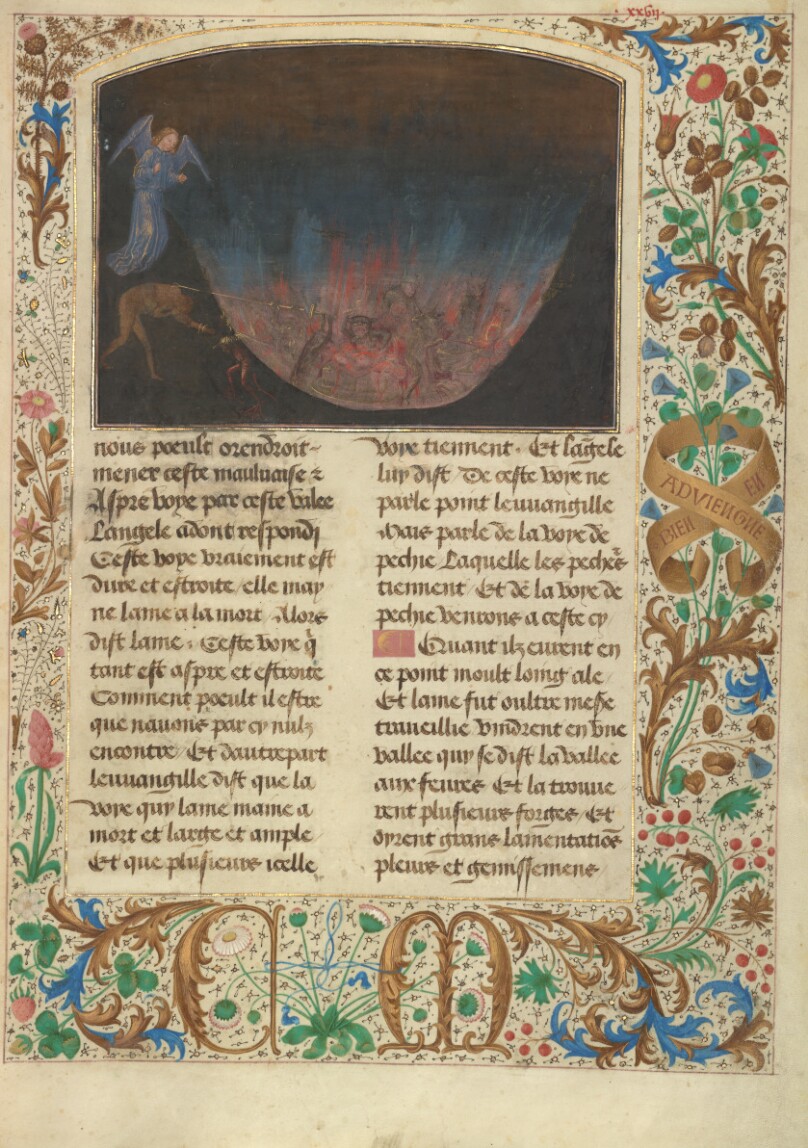 xxvii
nous poeult orendroit
mener ceste mauluaise &
Aspre voye par ceste valee
Langele adont respondi
Ceste voye vraiement est
dure et estroite / elle may
ne lame a la mort / Alors
dist lame / Ceste voye q̄
tant est aspre et estroite
Comment poeult il estre
que nauons par cy nulz
encontre / Et dautrepart
leuuangille dist que la
voye quy lame maine a
mort et large et ample
Et que plusieurs icelle
voye tiennent . Et lāgele
luy dist / De ceste voye ne
parle point leuuangille
Mais parle de la voye de
pechie Laquelle les pecheꝛ̄s
tiennent / Et de la voye de
pechie venrons a ceste cy
Quant ilz eurent en
ce point moult loing ale
Et lame fut oultre mesᷣe
traueillie vindrent en vne
vallee quy se dist la vallee
aux feures Et la trouue
rent plusieurs forges / Et
oyrent grans lamentatiōs
pleurs et gemissemens
BIEN EN ADVIENGNE
C M